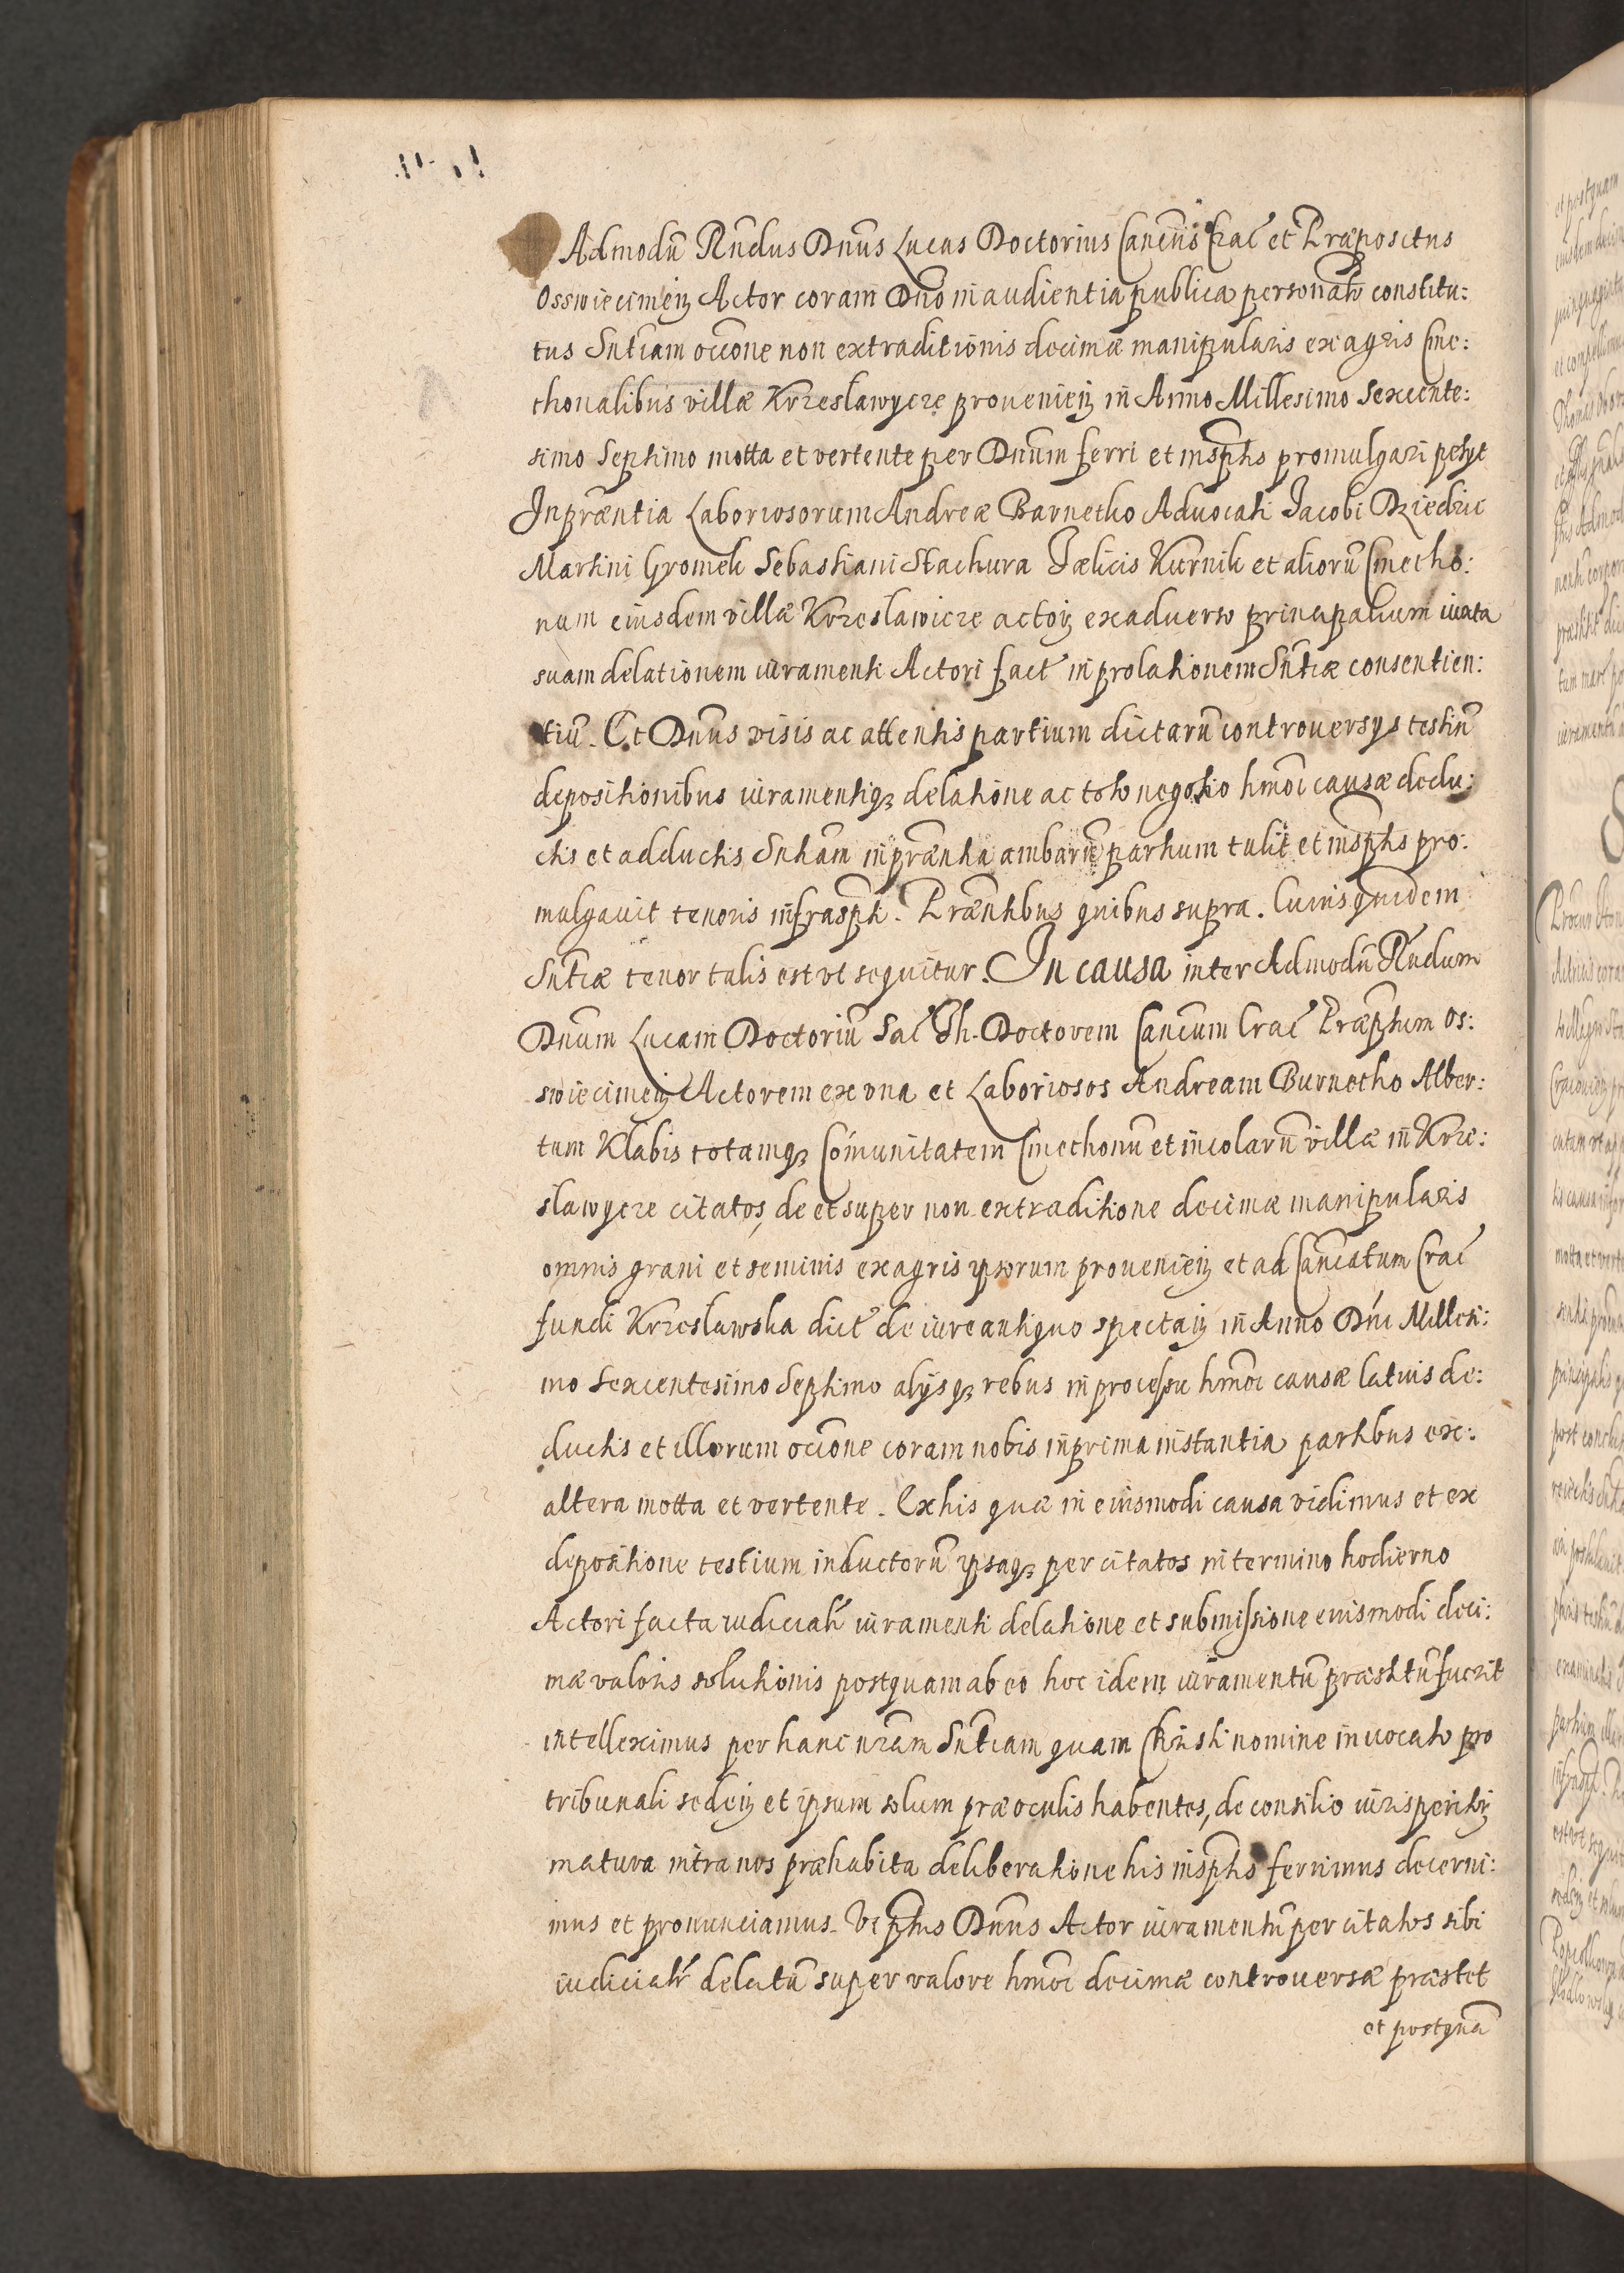 Admodũ Rñdus Dñus Lucas Doctorius Cancũs Crac̃ et Præpositus
Osswiecimeñ Actor coram Dño in audientia publica personalr̃ constitu:
tus Sñtiam occõne non extraditionis decimæ manipularis ex agris Cme:
thonalibus villæ Krzeslawycze prouenieñ in Anno Millesimo Sexcente:
simo Septimo motta et vertente per Dnum ferri et insptis promulgari petyt
In præntia Laboriosorum Andreæ Barnetho Aduocati Jacobi Dziedzic
Martini Gromek Sebastiani Stachura Fælicis Kurnik et aliorũ Cmetho:
num eiusdem villæ Krzeslawicze actoꝝ ex aduerso principalium iuxta
suam delationem iuramenti Actori fact̃ in prolationem Sñtiæ consentien:
tiũ. Et Dñus visis ac attentis partium dictarũ controuersys testiũ
depositionibus iuramentiqꝫ delatione ac toto negotio hmõi causæ dedu:
ctis et adductis Sntiam in præntia ambarũ partium tulit et insptis pro:
mulgauit tenoris infraspti. Præntibus quibus supra. Cuius quidem
Sñtiæ tenor talis est vt sequitur. In causa inter Admodũ Rñdum
Dnum Lucam Doctoriũ Sac̃ Th. Doctorem Cancum Crac̃ Præptum Os:
swiecimeñ Actorem ex vna et Laboriosos Andream Burnetho Alber:
tum Klabis totamqꝫ Cõmunitatem Cmethonũ et incolarũ villæ in Krze:
slawycze citatos, de et super non extraditione decimæ manipularis
omnis grani et seminis ex agris ipsorum prouenieñ et ad Cancatum Crac̃
fundi Krzeslawska dict̃ de iure antiquo spectañ in Anno Dñi Millesi:
mo Sexcentesimo Septimo alysqꝫ rebus in processu hmõi causæ latius de:
ductis et illorum occõne coram nobis in prima instantia partibus ex:
altera motta et vertente. Ex his quæ in eiusmodi causa vidimus et ex
depositione testium inductorũ ipsaqꝫ per citatos in termino hodierno
Actori facta iudicialr̃ iuramenti delatione et submissione eiusmodi deci:
mæ valoris solutionis postquam ab eo hoc idem iuramentũ præstitũ fuerit
intelleximus per hanc nr̃am Sñtiam quam Christi nomine inuocato pro
tribunali sedeñ et ipsum solum præ oculis habentes, de consilio iurisperitoꝝ
matura intra nos præhabita deliberatione his insptis ferimus decerni:
mus et pronunciamus. Vt pttus Dñus Actor iuramentũ per citatos sibi
iudicialr̃ delatũ super valore hmõi decimæ controuersæ præstet
et postquã